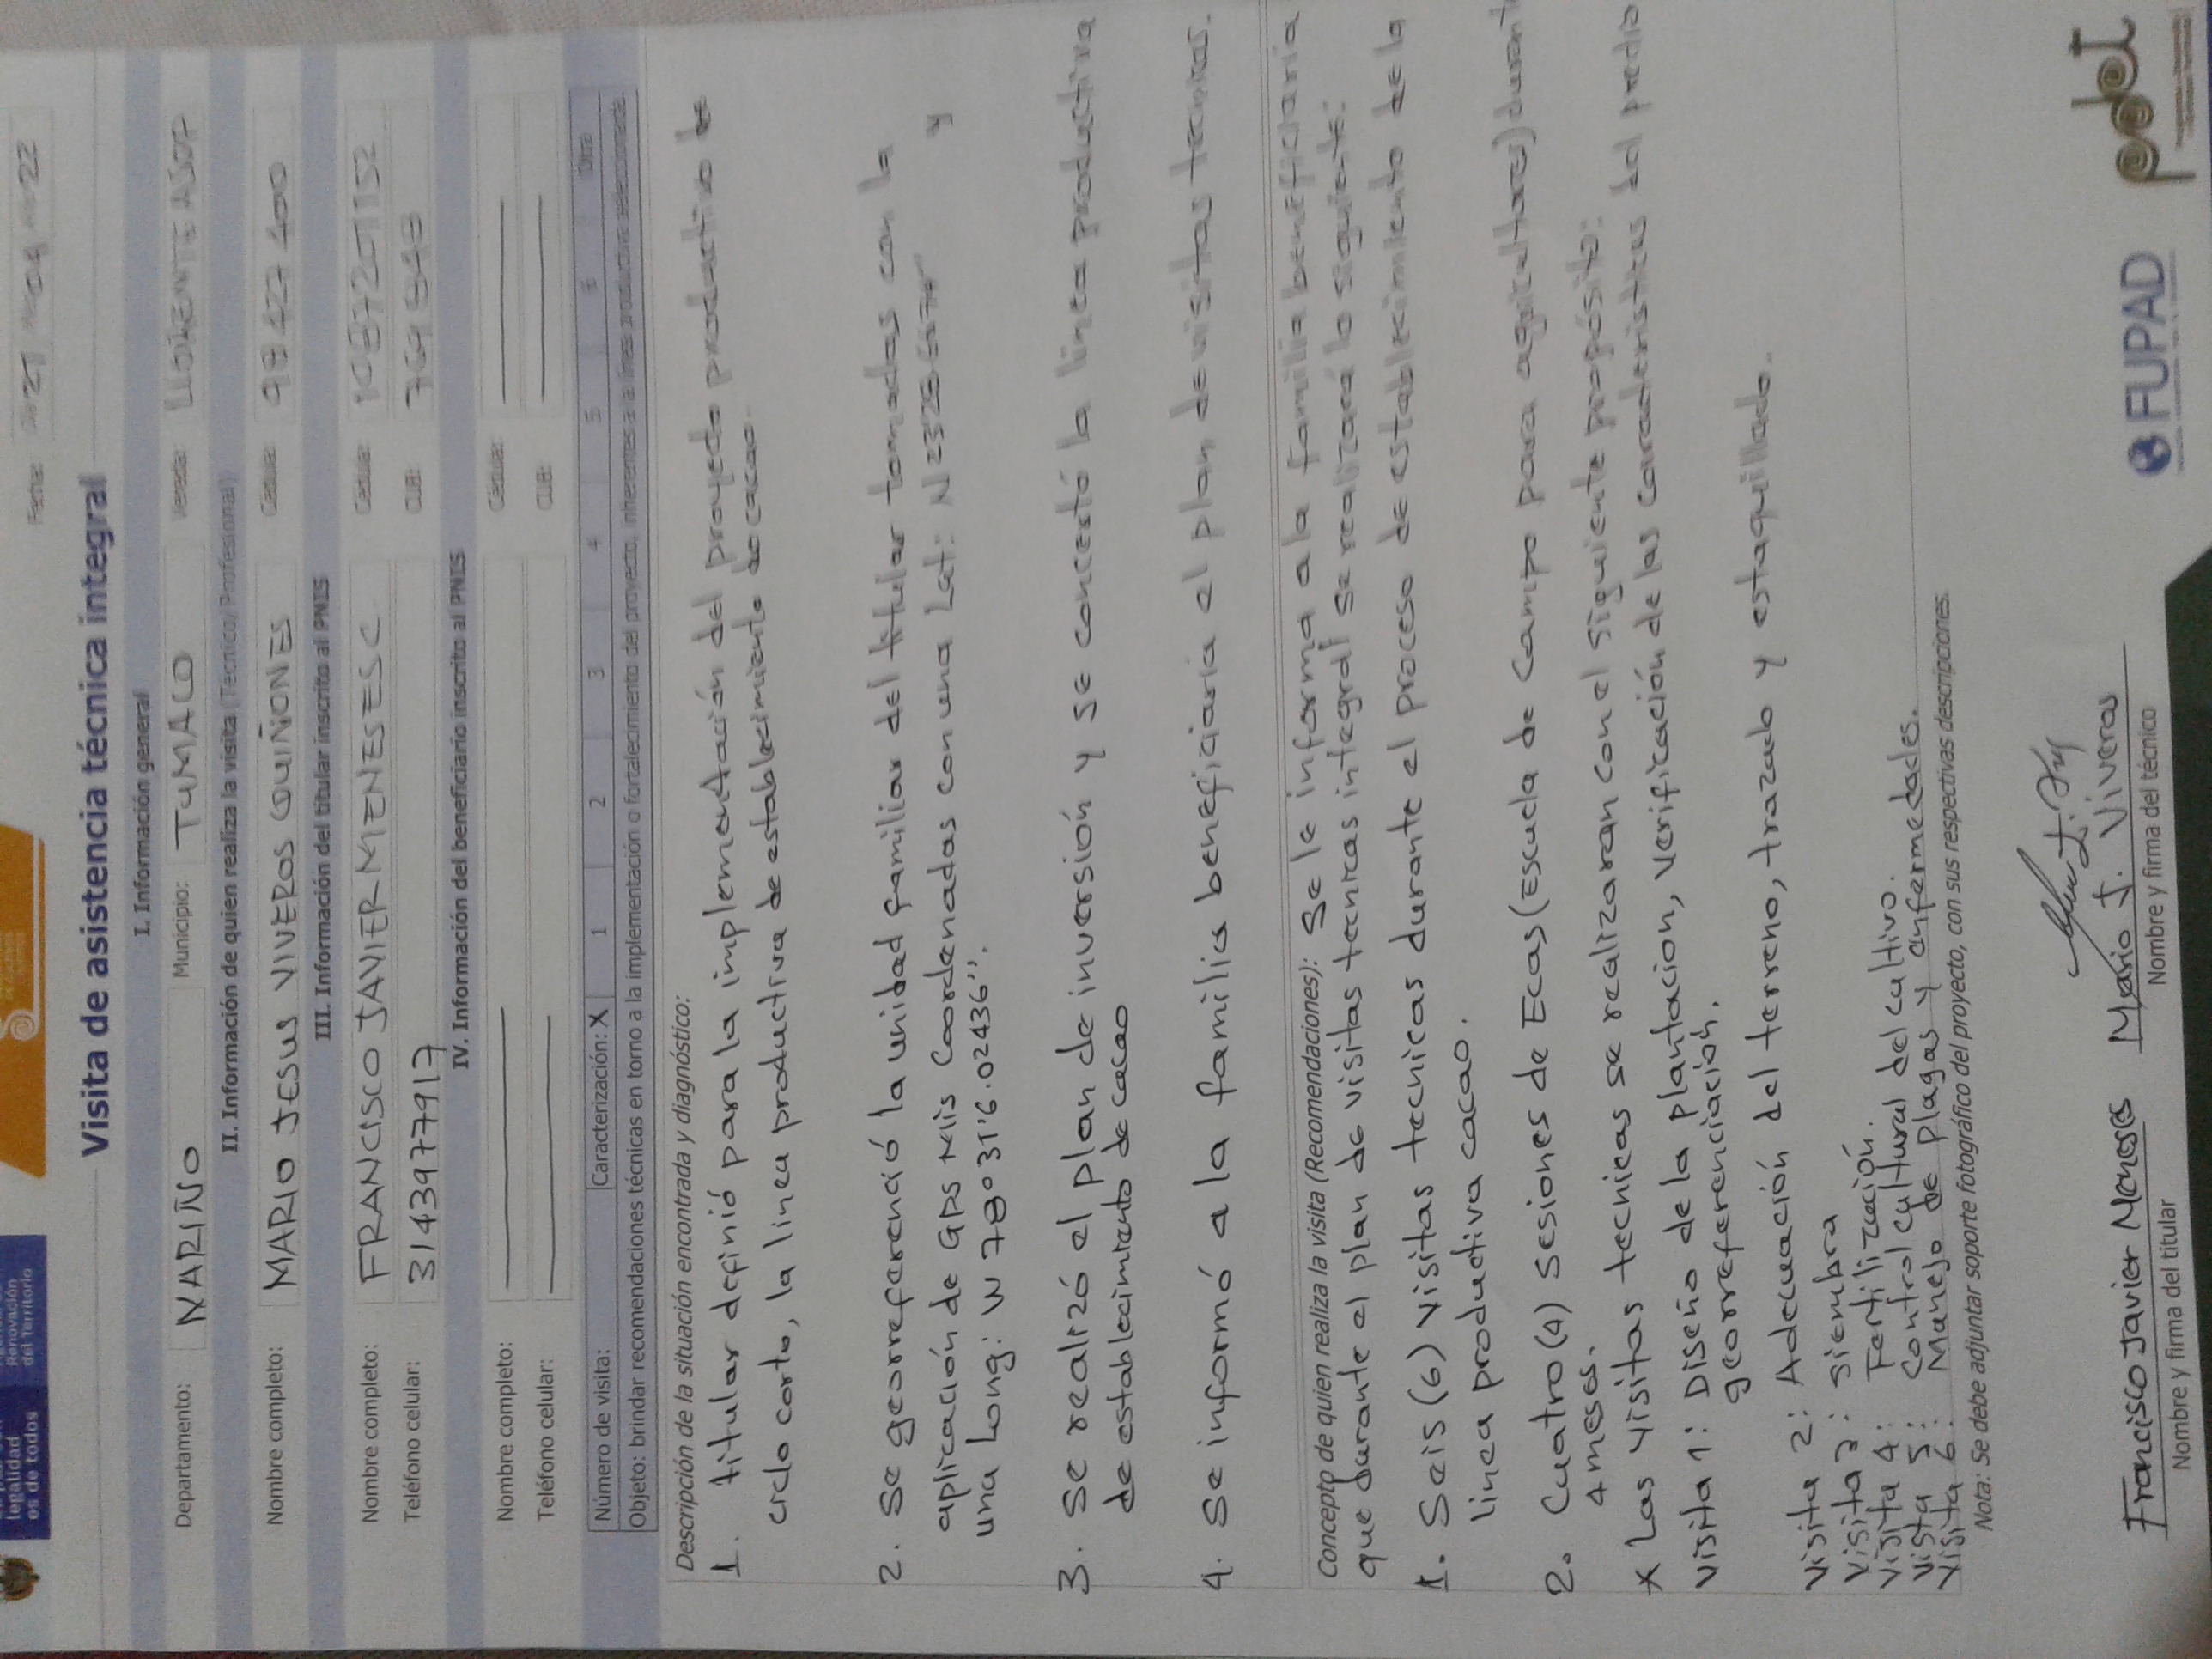 legalidad
es de todos
Renovación
del Territorio
Fecha:
Visita de asistencia técnica integral
I. Información general
Departamento: NARIÑO Municipio: TUMACO Vereda: LLORENTE
II. Información de quien realiza la visita (Técnico/Profesional)
Nombre completo: MARIO JESUS VIVEROS QUIÑONES Cédula: 98 427 400
III. Información del titular inscrito al PNIS
Nombre completo: FRANCISCO JAVIER MENESES C Cédula:
Teléfono celular: 3143977917 CUB:
IV. Información del beneficiario inscrito al PNIS
Nombre completo: Cédula:
Teléfono celular: CUB:
Número de visita: Caracterización: X 1 2 3 4 5 6 Otra
Objeto: brindar recomendaciones técnicas en torno a la implementación o fortalecimiento del proyecto, inherentes a a línea productiva seleccionada.
Descripción de la situación encontrada y diagnóstico:
1. titular definió para la implementación del proyecto productivo de
ciclo corto, la linea productiva de establecimiento de cacao.
2. Se georreferenció la unidad familiar del titular tomadas con la
aplicación de GPS Coordenadas con una Lat: y
una Long: W 78° 31'6.02436".
3. Se realizó el plan de inversión y se concertó la linea productiva
de establecimiento de cacao
4. Se informó a la familia beneficiaria el plan de visitas tecnicas.
Concepto de quien realiza la visita (Recomendaciones): Se le informa a la familia beneficiaría
que durante el plan de visitas tecnicas integral se realizará lo siguiente:
1. Seis (6) visitas tecnicas durante el proceso de establecimiento de la
linea productiva cacao.
2. Cuatro (4) sesiones de Ecas (Escuela de Campo para agricultores) durante
4 meses.
* Las visitas tecnicas se realizaran con el siguiente propósito:
Visita 1: Diseño de la plantacion, verificación de las caracteristicas del predio
georreferenciación.
Visita 2: Adecuación del terreno, trazado y estaquillado.
Visita 3: siembra
Visita 4: Fertilización.
Vista 5: Control cultural del cultivo.
Visita 6: Manejo de plagas y enfermedades.
Nota: Se debe adjuntar soporte fotográfico del proyecto, con sus respectivas descripciones.
Francisco Javier Meneses Mario J. Viveros
Nombre y firma del titular Nombre y firma del técnico
FUPAD pdet